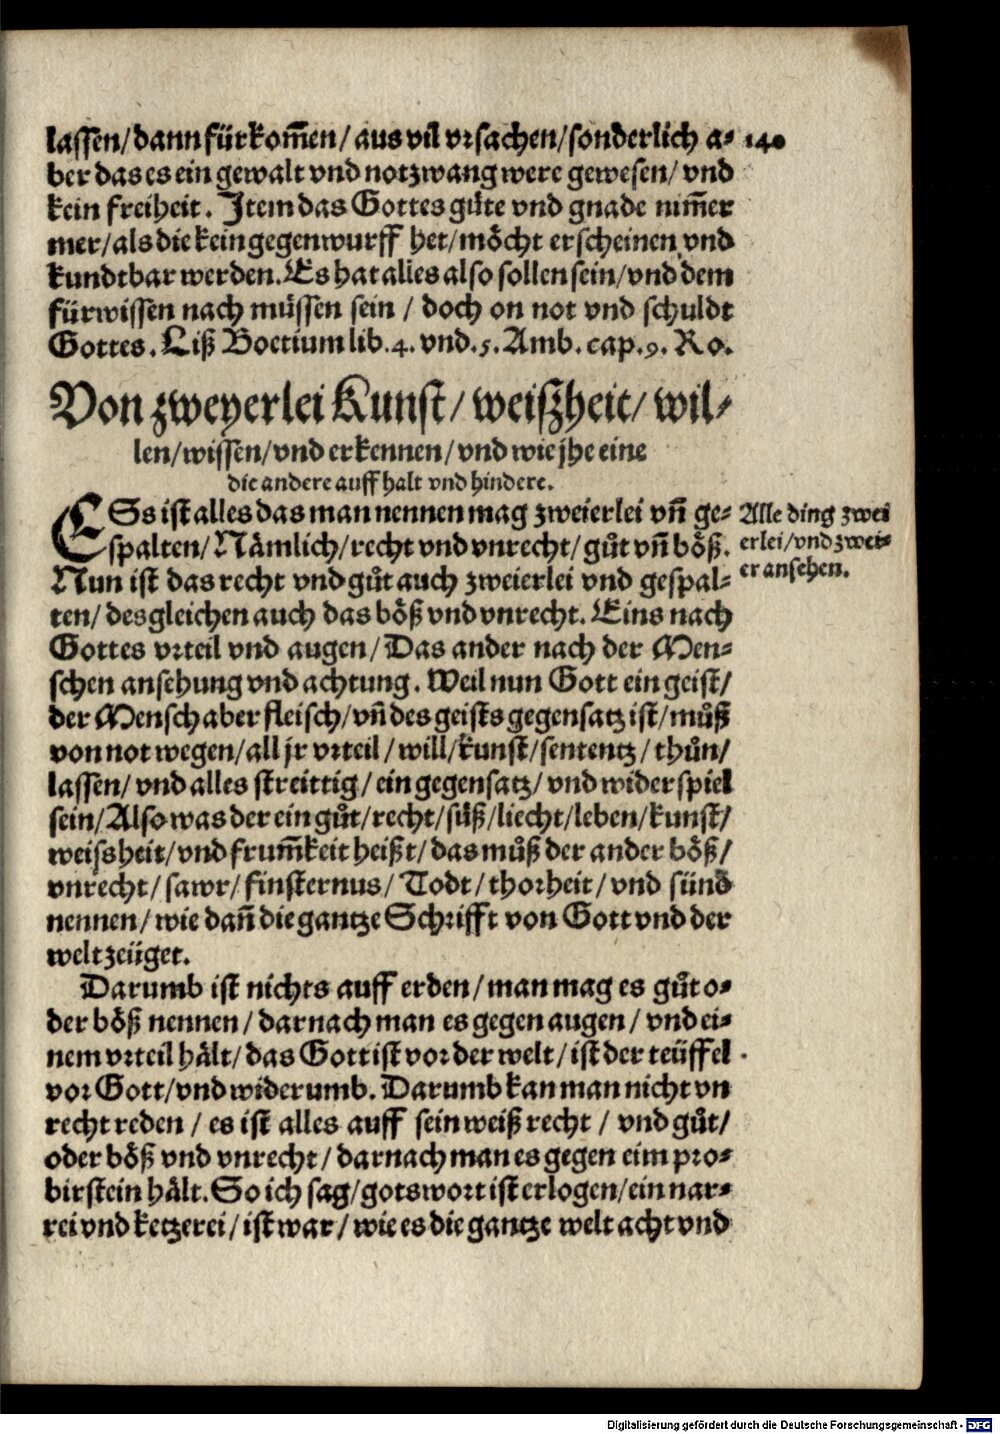 lassen/ dann fürkom̃en/ aus vil vrsachen/ sonderlich a⸗ 140
ber das es ein gewalt vnd notzwang were gewesen/ vnd
kein freiheit. Item das Gottes gůte vnd gnade nim̃er
mer/ als die kein gegenwurff het/ möcht erscheinen vnd
kundtbar werden. Es hat alles also sollen sein/ vnd dem
fürwissen nach müssen sein / doch on not vnd schuldt
Gottes. Liß Boetium lib. 4. vnd. 5. Amb. cap. 9. Ro.
Von zweyerlei Kunst/ weißheit/ wil⸗
len/ wissen/ vnd erkennen/ vnd wie jhe eine
die andere auff halt vnd hindere.
ESs ist alles das man nennen mag zweierlei vñ ge⸗
spalten/ Nämlich/ recht vnd vnrecht/ gůt vñ böß.
Nun ist das recht vnd gůt auch zweierlei vnd gespal⸗
ten/ desgleichen auch das böß vnd vnrecht. Eins nach
Gottes vrteil vnd augen/ Das ander nach der Men⸗
schen ansehung vnd achtung. Weil nun Gott ein geist/
der Mensch aber fleisch/ vñ des geists gegensatz ist/ můß
von not wegen/ all jr vrteil / will/ kunst/ sententz / thůn/
lassen/ vnd alles streittig/ ein gegensatz/ vnd widerspiel
sein/ Also was der ein gůt/ recht/ süß/ liecht/ leben/ kunst/
weißheit/ vnd frum̃keit heißt/ das můß der ander böß/
vnrecht/ sawr/ finsternus/ Todt/ thorheit/ vnd sünd
nennen/ wie dañ die gantze Schrifft von Gott vnd der
welt zeüget.
Darumb ist nichts auff erden/ man mag es gůt o⸗
der böß nennen/ darnach man es gegen augen/ vnd ei⸗
nem vrteil hält/ das Gott ist vor der welt/ ist der teüffel
vor Gott/ vnd widerumb. Darumb kan man nicht vn
recht reden / es ist alles auff sein weiß recht / vnd gůt/
oder böß vnd vnrecht/ darnach man es gegen eim pro⸗
birstein hält. So ich sag/ gotswort ist erlogen/ ein nar⸗
rei vnd ketzerei/ ist war/ wie es die gantze welt acht vnd
Alle ding zwei
erlei/ vnd zwei⸗
er ansehen.
Digitalisierung gefördert durch die Deutsche Forschungsgemeinschaft - DFG